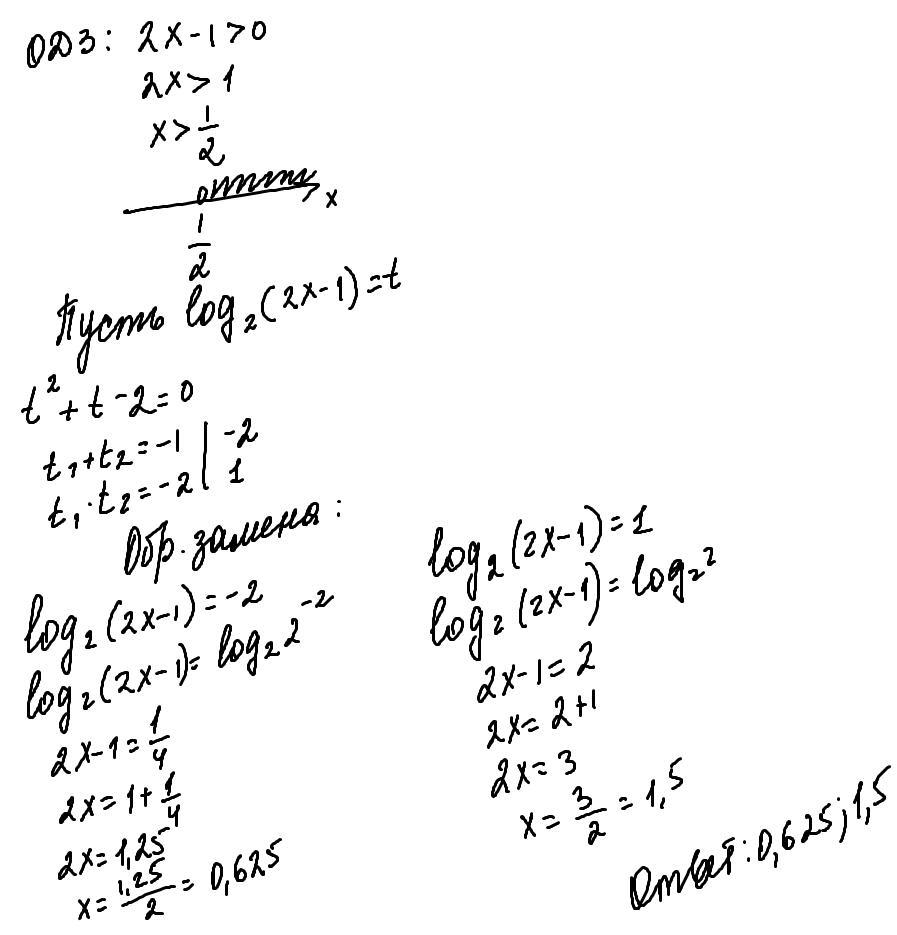 ОДЗ: 2x-1>0
2x>1
x>1/2
x
1/2
Пусть log₂(2x-1)=t
t²+t-2=0
t₁+t₂=-1 | -2
t₁·t₂=-2 | 1
Обр. замена:
log₂(2x-1)=-2
log₂(2x-1)=log₂2⁻²
2x-1=1/4
2x=1+1/4
2x=1,25
x=1,25/2=0,625
log₂(2x-1)=1
log₂(2x-1)=log₂2
2x-1=2
2x=2+1
2x=3
x=3/2=1,5
Ответ: 0,625; 1,5